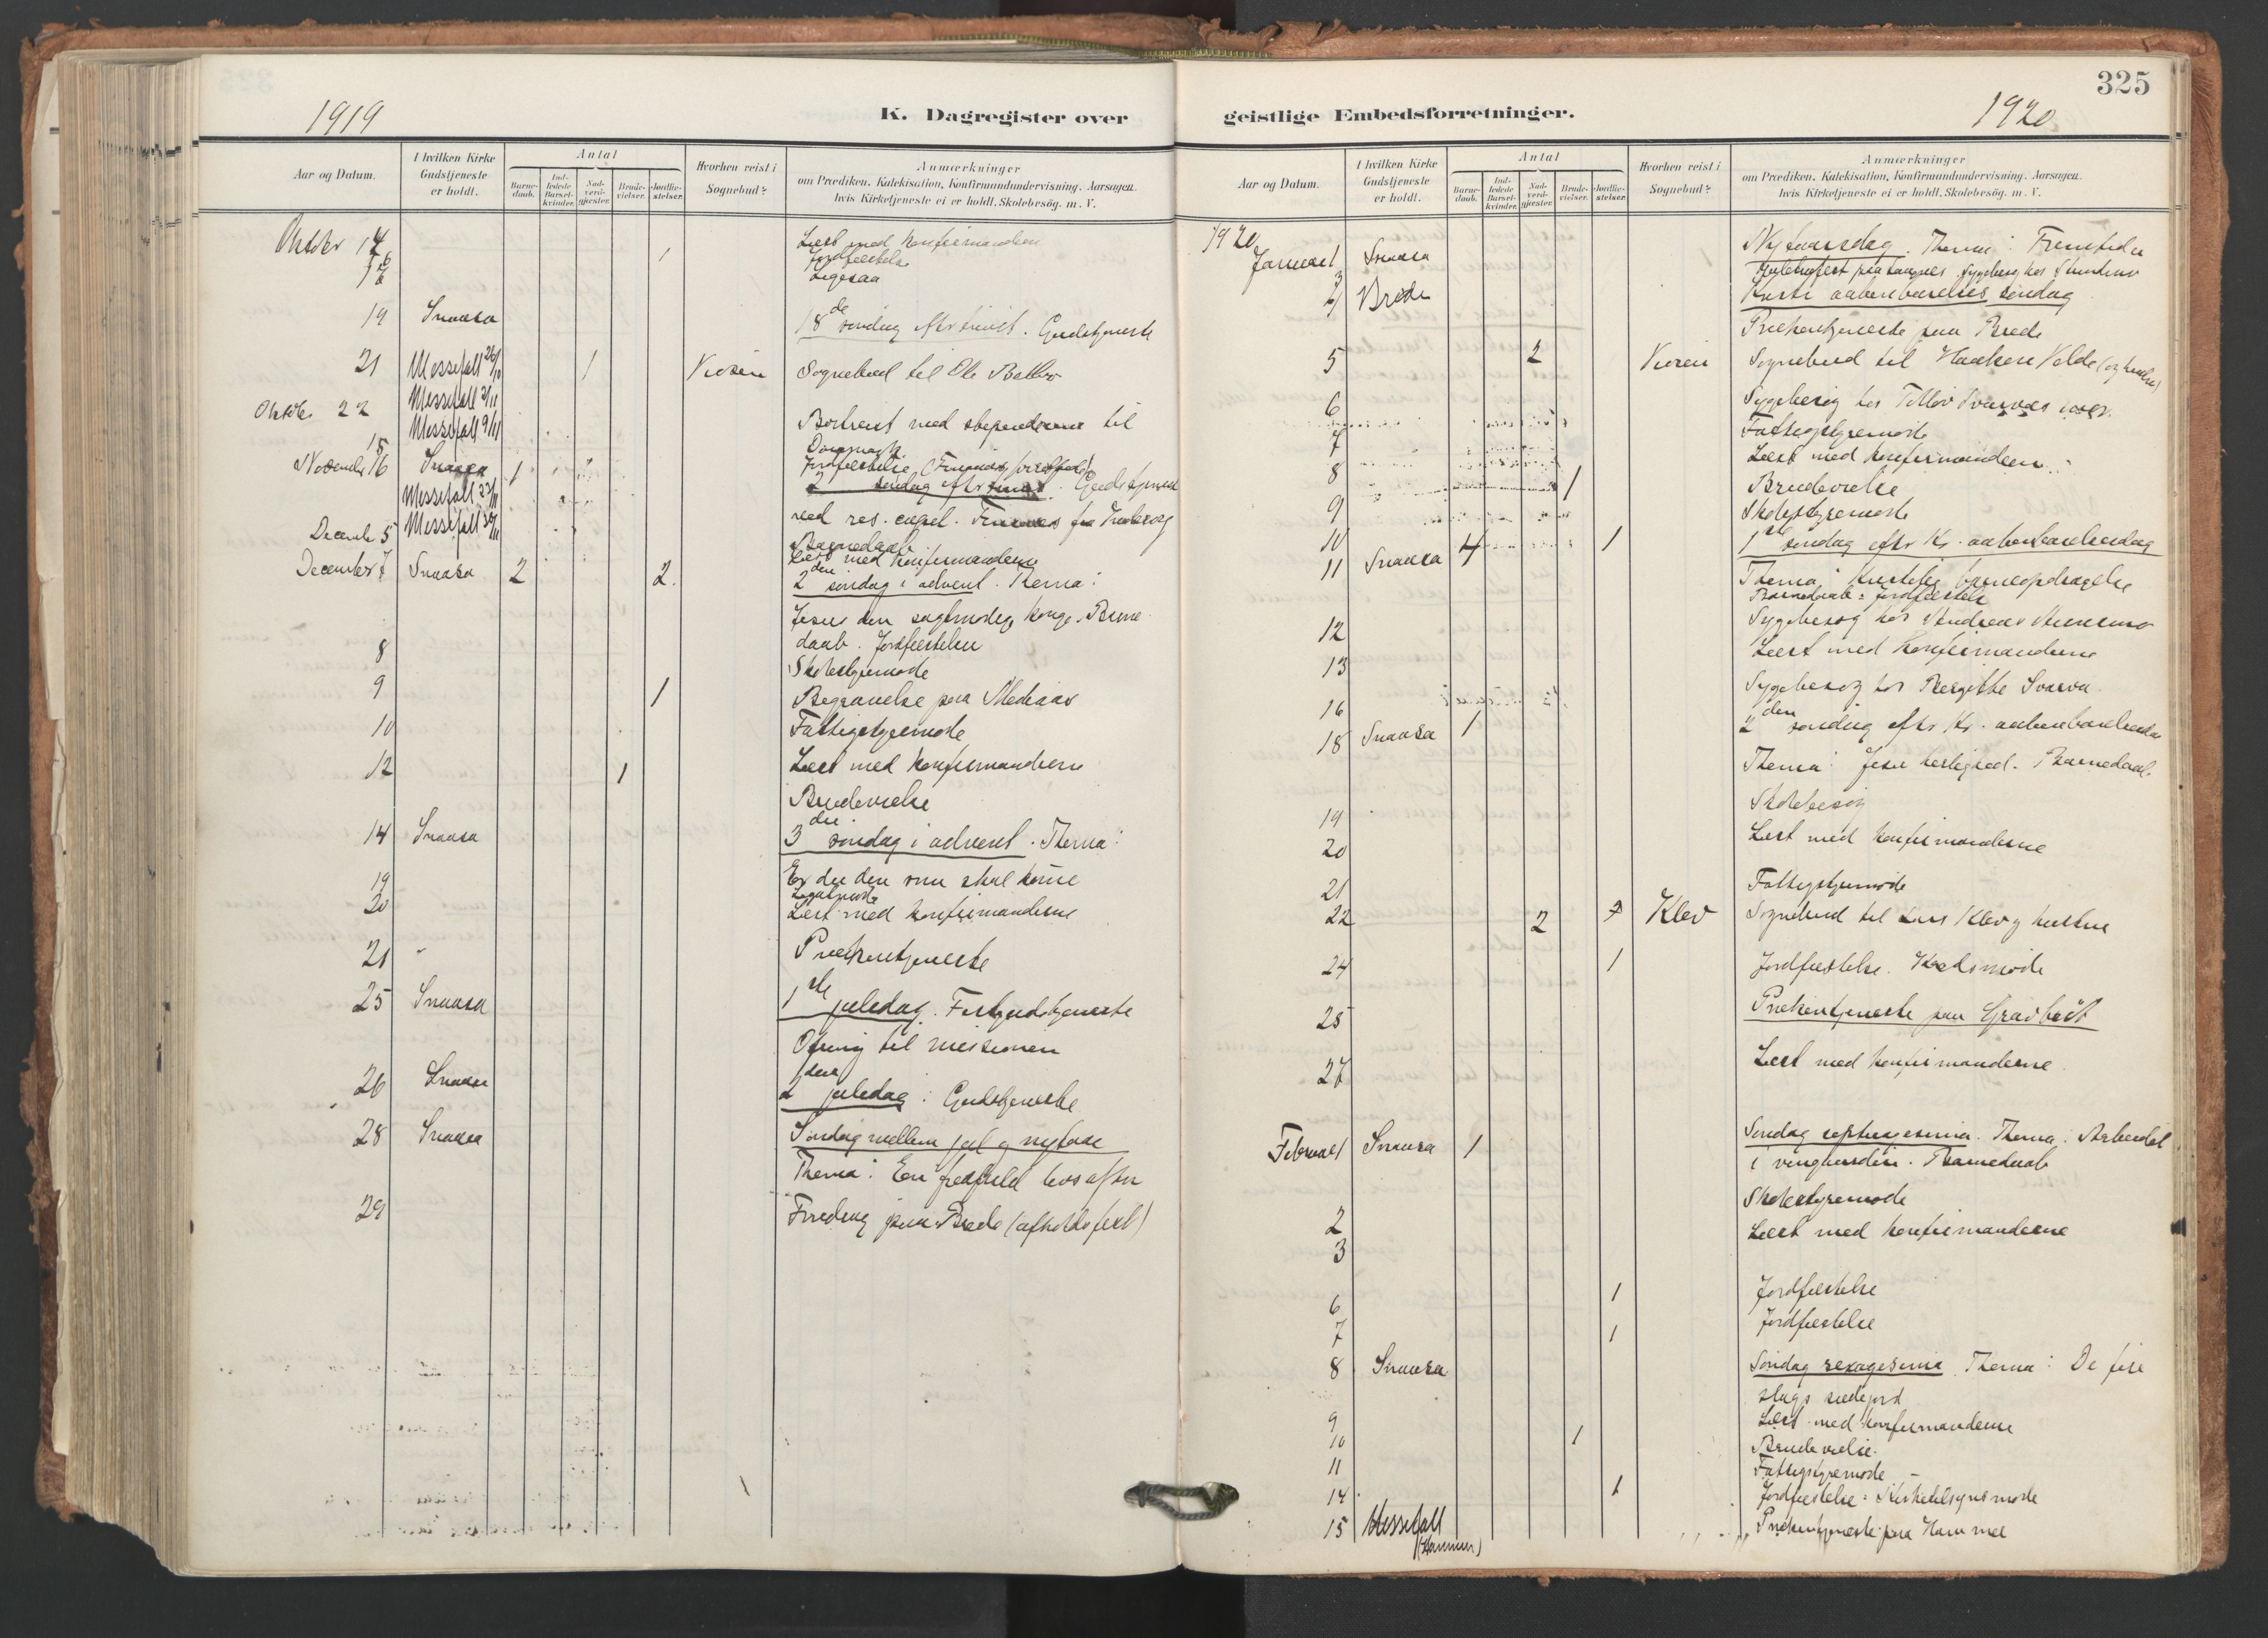 1919
K. Dagregister over
Aar og Datum.
I hvilken Kirke Gudstjeneste er holdt.
Antal
Barne-daab.
Ind-ledede Barsel-kvinder.
Nad-verd-gjæster.
Brude-vielser.
Jordfæ-stelser.
Hvorhen reist i Sognebud?
Anmærkninger
om Prædiken, Katekisation, Konfirmandundervisning, Aarsagen,
hvis Kirketjeneste ei er holdt, Skolebesög, m. V.
Oktober 14 Læst med konfirmanderne
1 Jordfæstelse
Ligesaa
19 Snaasa 18de søndag efter trinit. Gudstjeneste
21 Messefall 26/10 1 Sognebud til Ole
Messefall 2/11
Oktober 22 Messefall 9/11 Bortreist med til
15
November 16 Snaasa 1 Jordfæstelse
søndag efter Gudstjeneste
Messefall 23/11 ved res. capel. fra
December 5 Messefall 30/11 Barnedaab
Læst med konfirmanderne
December 7 Snaasa 2 2. 2den søndag i advent. Thema:
Jesus den sagtmodige konge. Barne-
daab. Jordfæstelse
8 Skolestyremøde
9 1 Begravelse paa
10 Fattigstyremøde
12 1 Læst med konfirmanderne
Brudevielse
14 Snaasa 3die søndag i advent. Thema:
Er du den som skal komme
19
20 Læst med konfirmanderne
21 " Prækentjeneste
25 Snaasa 1ste juledag. Festgudstjeneste
Ofring til missionen
26 Snaasa 2den juledag: Gudstjeneste
28 Snaasa Søndag mellem jul og nytaar
Thema: En fredfuld livsaften
29 Foredrag paa Brede (afholdsfest)
325
1920
geistlige Embedsforretninger.
Aar og Datum.
I hvilken Kirke Gudstjeneste er holdt.
Antal
Barne-daab.
Ind-ledede Barsel-kvinder.
Nad-verd-gjæster.
Brude-vielser.
Jordfæ-stelser.
Hvorhen reist i Sognebud?
Anmærkninger
om Prædiken, Katekisation, Konfirmandundervisning, Aarsagen,
hvis Kirketjeneste ei er holdt, Skolebesög, m. V.
1920
Januar 1 Snaasa Nytaarsdag. Thema: Fremtiden
3 Juletrefest paa Sygebesøg hos
4 Brede Kristi aabenbarelses søndag
Prækentjeneste paa Brede
5 2 Sognebud til Haakon
6 Sygebesøg hos
7 Fattigstyremøde
8 Læst med konfirmanderne
9 1 Brudevielse
10 1 Skolestyremøde
11 Snaasa 4 1ste søndag efter Kr. aabenbarelsesdag
Thema: Kristelig barneopdragelse
Barnedaab: Jordfæstelse
12 Sygebesøg hos Andreas
13 Læst med konfirmanderne
16 Sygebesøg hos Bergitte
18 Snaasa 1 2den søndag efter Kr. aabenbarelsesdag
Thema: Jesu herlighed. Barnedaab.
19 Skolebesøg
20 Læst med konfirmanderne
21 Fattigstyremøde
22 2 Klev Sognebud til Lars Klev og hustru
24 1 Jordfæstelse. Kredsmøde
25 Prækentjeneste paa Gravbrøt
27 Læst med konfirmanderne
Februar 1 Snaasa 1 Søndag septuagesima. Thema: Arbeidet
i vingaarden. Barnedaab
2 Skolestyremøde
3 Læst med konfirmanderne
6 1 Jordfæstelse
7 1 Jordfæstelse
8 Snaasa Søndag sexagesima Thema: De fire
slags sædejord
9 Læst med konfirmanderne
10 1 Brudevielse.
11 Fattigstyremøde
14 1 Jordfæstelse: Kirketilsynsmøde
15 Messefall Prækentjeneste paa Hammer
(Hammer)